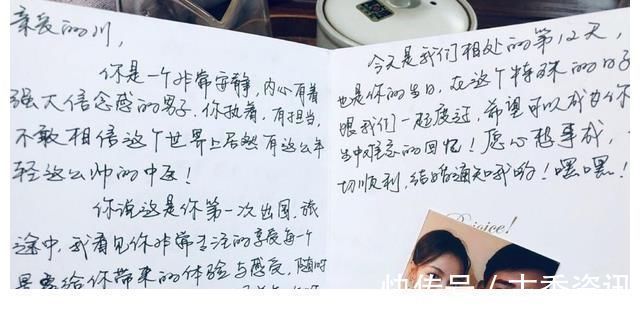 亲爱的川，
你是一个非常安静，内心有着
强大信念感的男子，你执着，有担当，
不敢相信这个世界上居然有这么年
轻这么帅的中医！
你说这是你第一次出国，旅
途中，我看见你非常专注的享受每一个
景色给你带来的体验与感受，随时
今天是我们相处的第12天，
也是你的生日，在这个特殊的日子
跟我们一起度过，希望可以成为你
生中难忘的回忆！愿心想事成，一
切顺利，结婚通知我哟！嘿嘿！
Rejoice!
快传号 / 大秀资讯